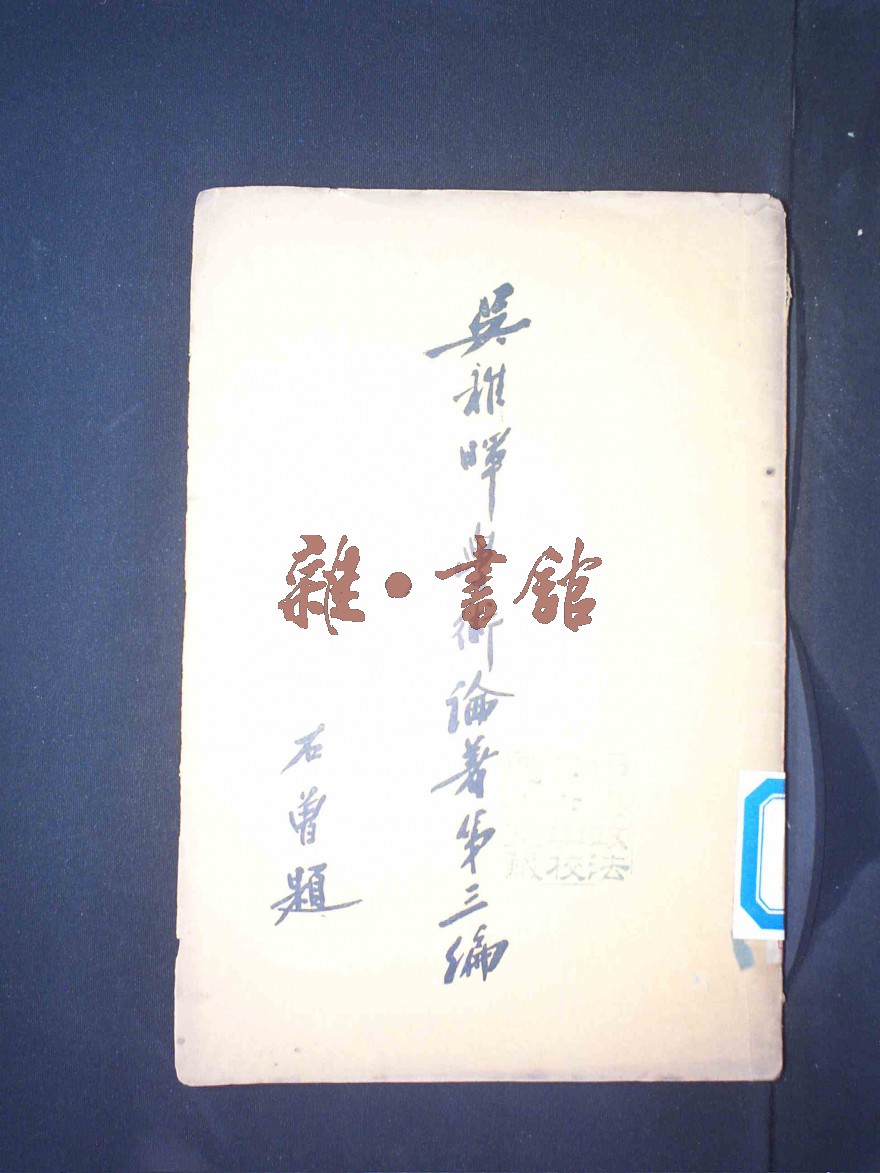 吳稚暉學術論著第三編
石曾題
雜·書館
政
校法